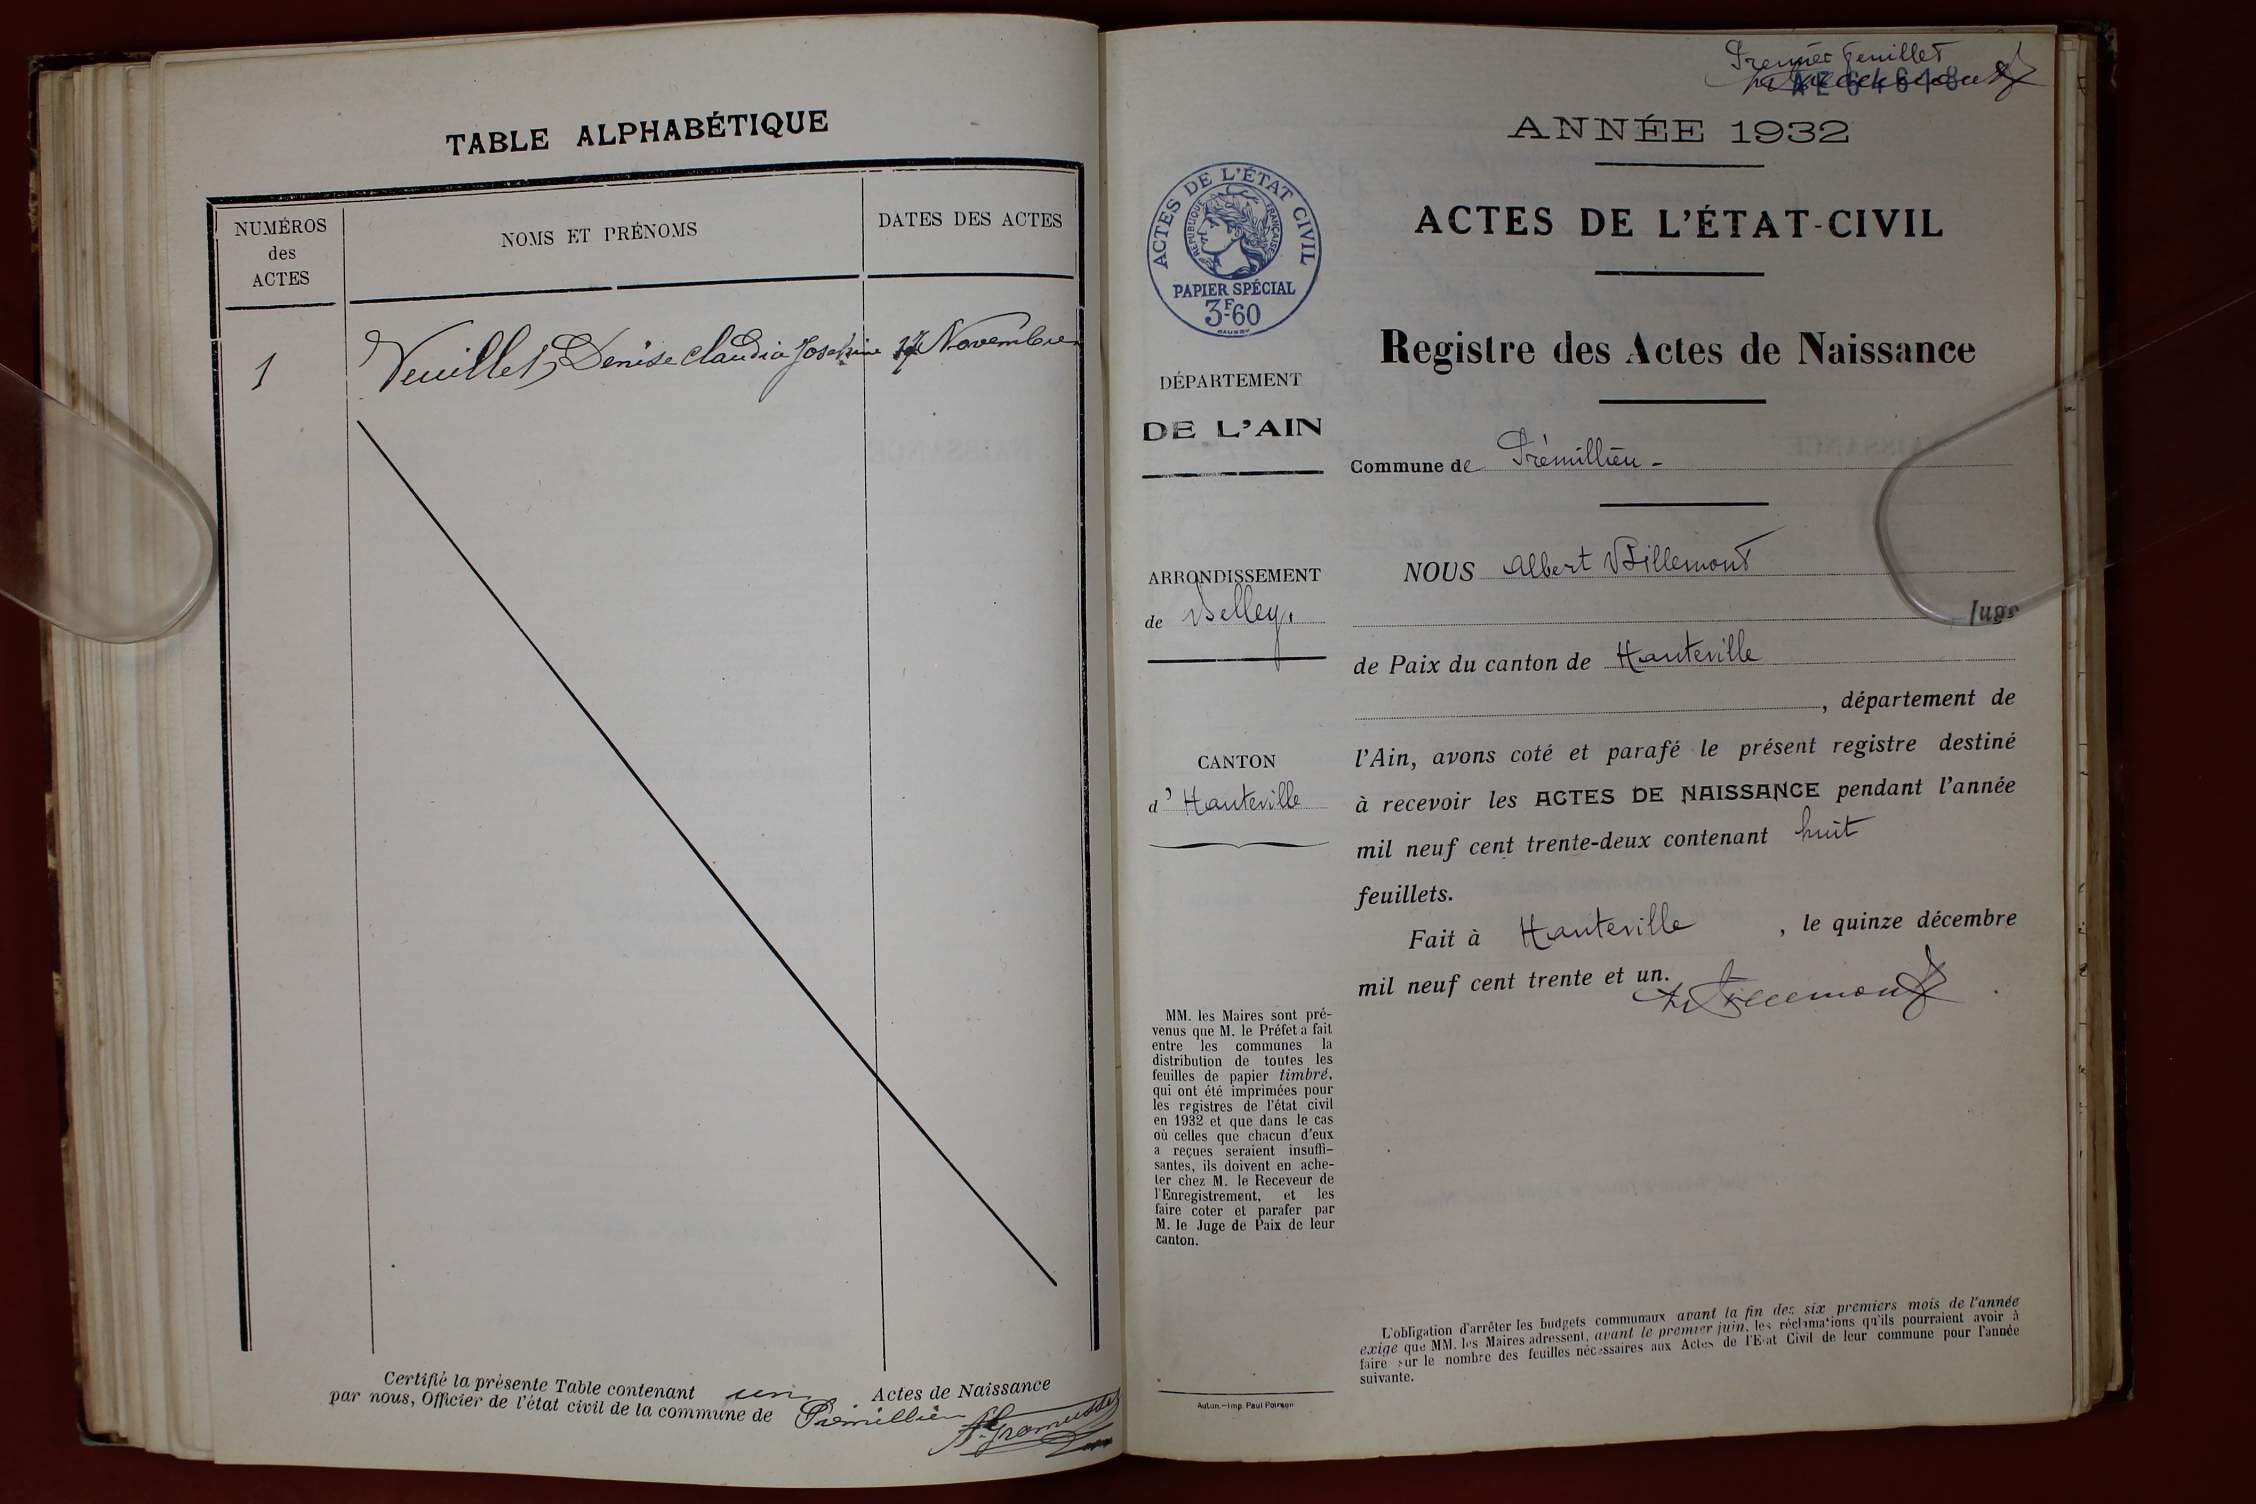 TABLE ALPHABÉTIQUE
NUMÉROS
des
ACTES
NOMS ET PRÉNOMS
DATES DES ACTES
1
Veuillet Denise Claudia Joséphine
Novembre
Certifié la présente Table contenant un Actes de Naissance
par nous, Officier de l'état civil de la commune de Prémillieu
Premier feuillet
ANNÉE 1932
ACTES DE L'ÉTAT-CIVIL
Registre des Actes de Naissance
ACTES DE L'ÉTAT CIVIL
RÉPUBLIQUE FRANÇAISE
PAPIER SPÉCIAL
3F60
DÉPARTEMENT
DE L'AIN
Commune de Prémillieu -
ARRONDISSEMENT
de Belley.
CANTON
d' Hauteville
NOUS Albert Billemont
Juge
de Paix du canton de Hauteville
, département de
l'Ain, avons coté et parafé le présent registre destiné
à recevoir les ACTES DE NAISSANCE pendant l'année
mil neuf cent trente-deux contenant huit
feuillets.
Fait à Hauteville , le quinze décembre
mil neuf cent trente et un.
MM. les Maires sont pré-
venus que M. le Préfet a fait
entre les communes la
distribution de toutes les
feuilles de papier timbré,
qui ont été imprimées pour
les registres de l'état civil
en 1932 et que dans le cas
où celles que chacun d'eux
a reçues seraient insuffi-
santes, ils doivent en ache-
ter chez M. le Receveur de
l'Enregistrement, et les
faire coter et parafer par
M. le Juge de Paix de leur
canton.
Autun.—Imp. Paul Poirson
L'obligation d'arrêter les budgets communaux avant la fin des six premiers mois de l'année
exige que MM. les Maires adressent, avant le premier juin, les réclamations qu'ils pourraient avoir à
faire sur le nombre des feuilles nécessaires aux Actes de l'Etat Civil de leur commune pour l'année
suivante.